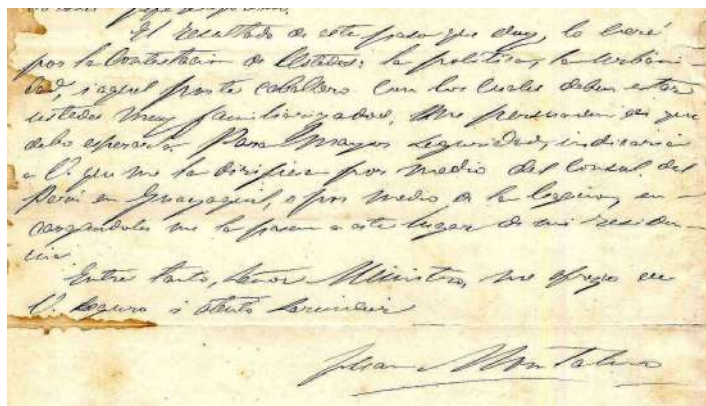 El resultado de este paso que doy, lo veré
por la contestacion de Ustedes: la política, la urbani-
dad, i aquel porte caballero con los cuales deben estar
ustedes muy familiarizados, me persuaden de que
debo esperarla. Para mayor seguridad, indicaria
a V. que me la dirijiera por medio del Consul del
Perú en Guayaquil, o por medio de la Legacion, en-
cargandoles me la pasen a este lugar de mi residen-
cia.
Entre tanto, Señor Ministro, me ofrezco de
V. seguro i atento servidor
Juan Montalvo